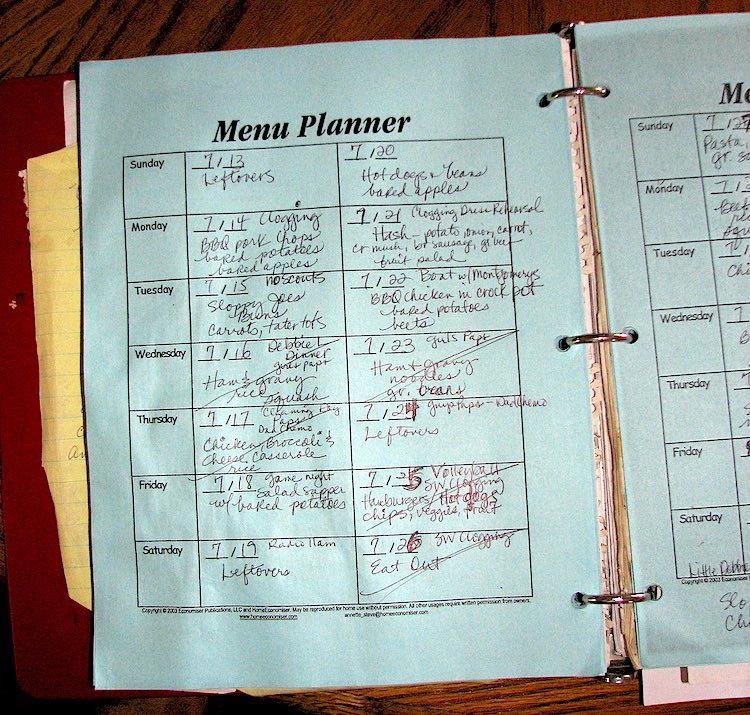 Menu Planner
Sunday
7/13
Leftovers
7/20
Hotdogs + beans
baked apples
Monday
7/14 Clogging
BBQ pork chops
baked potatoes
baked apples
7/21 Clogging Dress Rehersal
Hash - potato, onion, carrot,
cr mush, br sausage, gr beef
fruit salad
Tuesday
7/15 no scouts
Sloppy Joes
Buns
Carrots, tater tots
7/22 Boat w/Montgomerys
BBQ Chicken in crock pot
baked potatoes
beets
Wednesday
7/16 Debbie
Dinner
girls paps
Ham & gravy
rice
squash
7/23 girls Paps
Ham + Gravy
noodles
gr. beans
Thursday
7/17 Cleaning Day
Paps
Dad Chemo
Chicken, Broccoli &
Cheese Casserole
rice
7/24 guys Paps - Dad Chemo
Leftovers
Friday
7/18 game night
Salad Supper
w/ baked potatoes
7/25 Volleyball
SW Clogging
Hamburgers/Hot dogs
chips, veggies, fruit
Saturday
7/19 Radio Ham
Leftovers
7/26 SW Clogging
Eat Out
Copyright © 2003 Economiser Publications, LLC and HomeEconomiser. May be reproduced for home use without permission. All other usages require written permission from owners.
www.homeeconomiser.com annette_steve@homeeconomiser.com
Me
Sunday
7/27
Pasta,
gr. s
Monday
7/
Tuesday
Ch
Wednesday
Thursday
Friday
Saturday
Little Debbie
Copyright © 2003
Slo
Ch